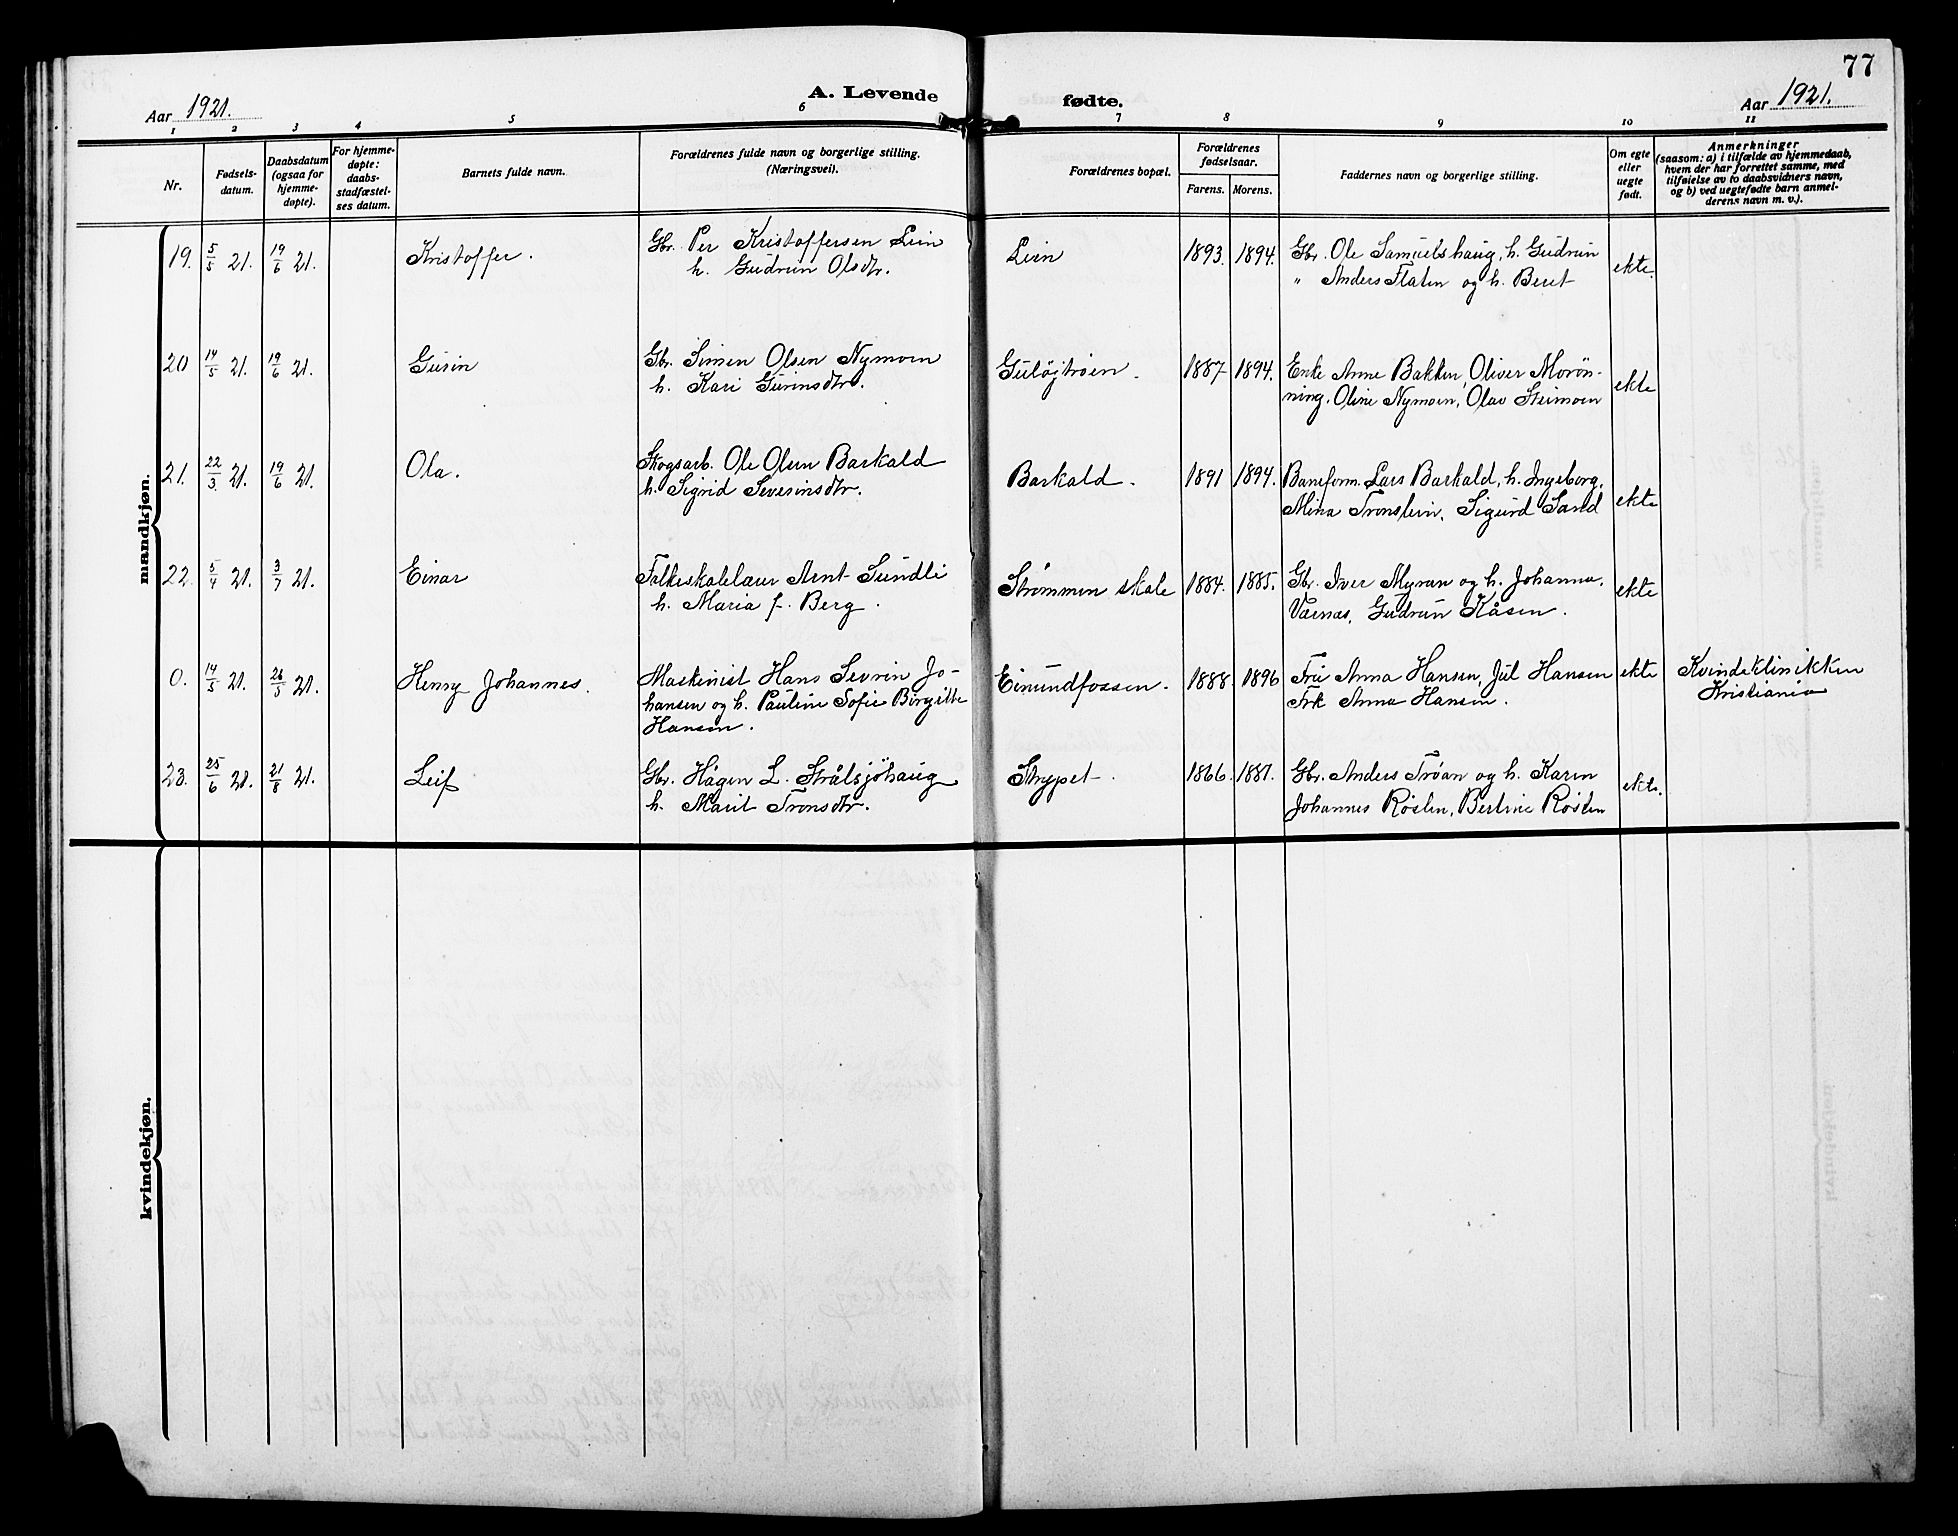 77
Aar 1921. A. Levende fødte. Aar 1921.
1 2 3 4 5 6 7 8 9 10 11
Nr.
Fødsels-
datum.
Daabsdatum
(ogsaa for
hjemme-
døpte).
For hjemme-
døpte:
daabs-
stadfæstel-
ses datum.
Barnets fulde navn.
Forældrenes fulde navn og borgerlige stilling.
(Næringsvei).
Forældrenes bopæl.
Forældrenes
fødselsaar.
Farens. Morens.
Faddernes navn og borgerlige stilling.
Om egte
eller
uegte
født.
Anmerkninger
(saasom: a) i tilfælde av hjemmedaab,
hvem der har forrettet samme, med
tilføielse av to daabsvidners navn,
og b) ved uegtefødte barn anmel-
derens navn m. v.).
mandkjøn.
19. 5/5 21. 19/6 21. Kristoffer. Gbr. Per Kristoffersen Lien Lien 1893. 1894. Gbr. Ole Samuelshaug, h. Gudrun ekte.
h. Gudrun Olsdtr. " Anders Flaten og h. Beret
20 14/5 21. 19/6 21. Gurin Gbr. Simen Olsen Nymoen Guløjtrøen. 1887 1894. Enke Anne Bakken, Oliver Morøn- ekte
h. Kari Gurinsdtr. ning, Oline Nymoen, Olav Steimoen
21. 22/3 21. 19/6 21. Ola. Skogsarb. Ole Olsen Barkald Barkald. 1891 1894. Baneform. Lars Barkald, h. Ingeborg, ekte
h. Sigrid Severinsdtr. Mina Tronslien, Sigurd Sand
22. 5/4 21. 3/7 21. Einar Folkeskolelærer Arnt Sundli Strømmen skole 1884. 1885. Gbr. Iver Myran og h. Johanna, ekte
h. Maria f. Berg. Værnæs, Gudrun Kåsen.
0. 14/5 21. 26/5 21. Henry Johannes. Maskinist Hans Sevrin Jo- Einundfossen. 1888. 1896 Fru Anna Hansen, Jul Hansen ekte Kvindeklinikken
hansen og h. Pauline Sofie Birgitte Frk Anna Hansen. Kristiania
Hansen.
23. 25/6 21. 21/8 21. Leif Gbr. Hågen L. Strålsjøhaug Strypet. 1866. 1881. Gbr. Anders Trøan og h. Karen ekte.
h. Marit Tronsdtr. Johannes Røsten, Bertine Røsten
kvindekjøn.